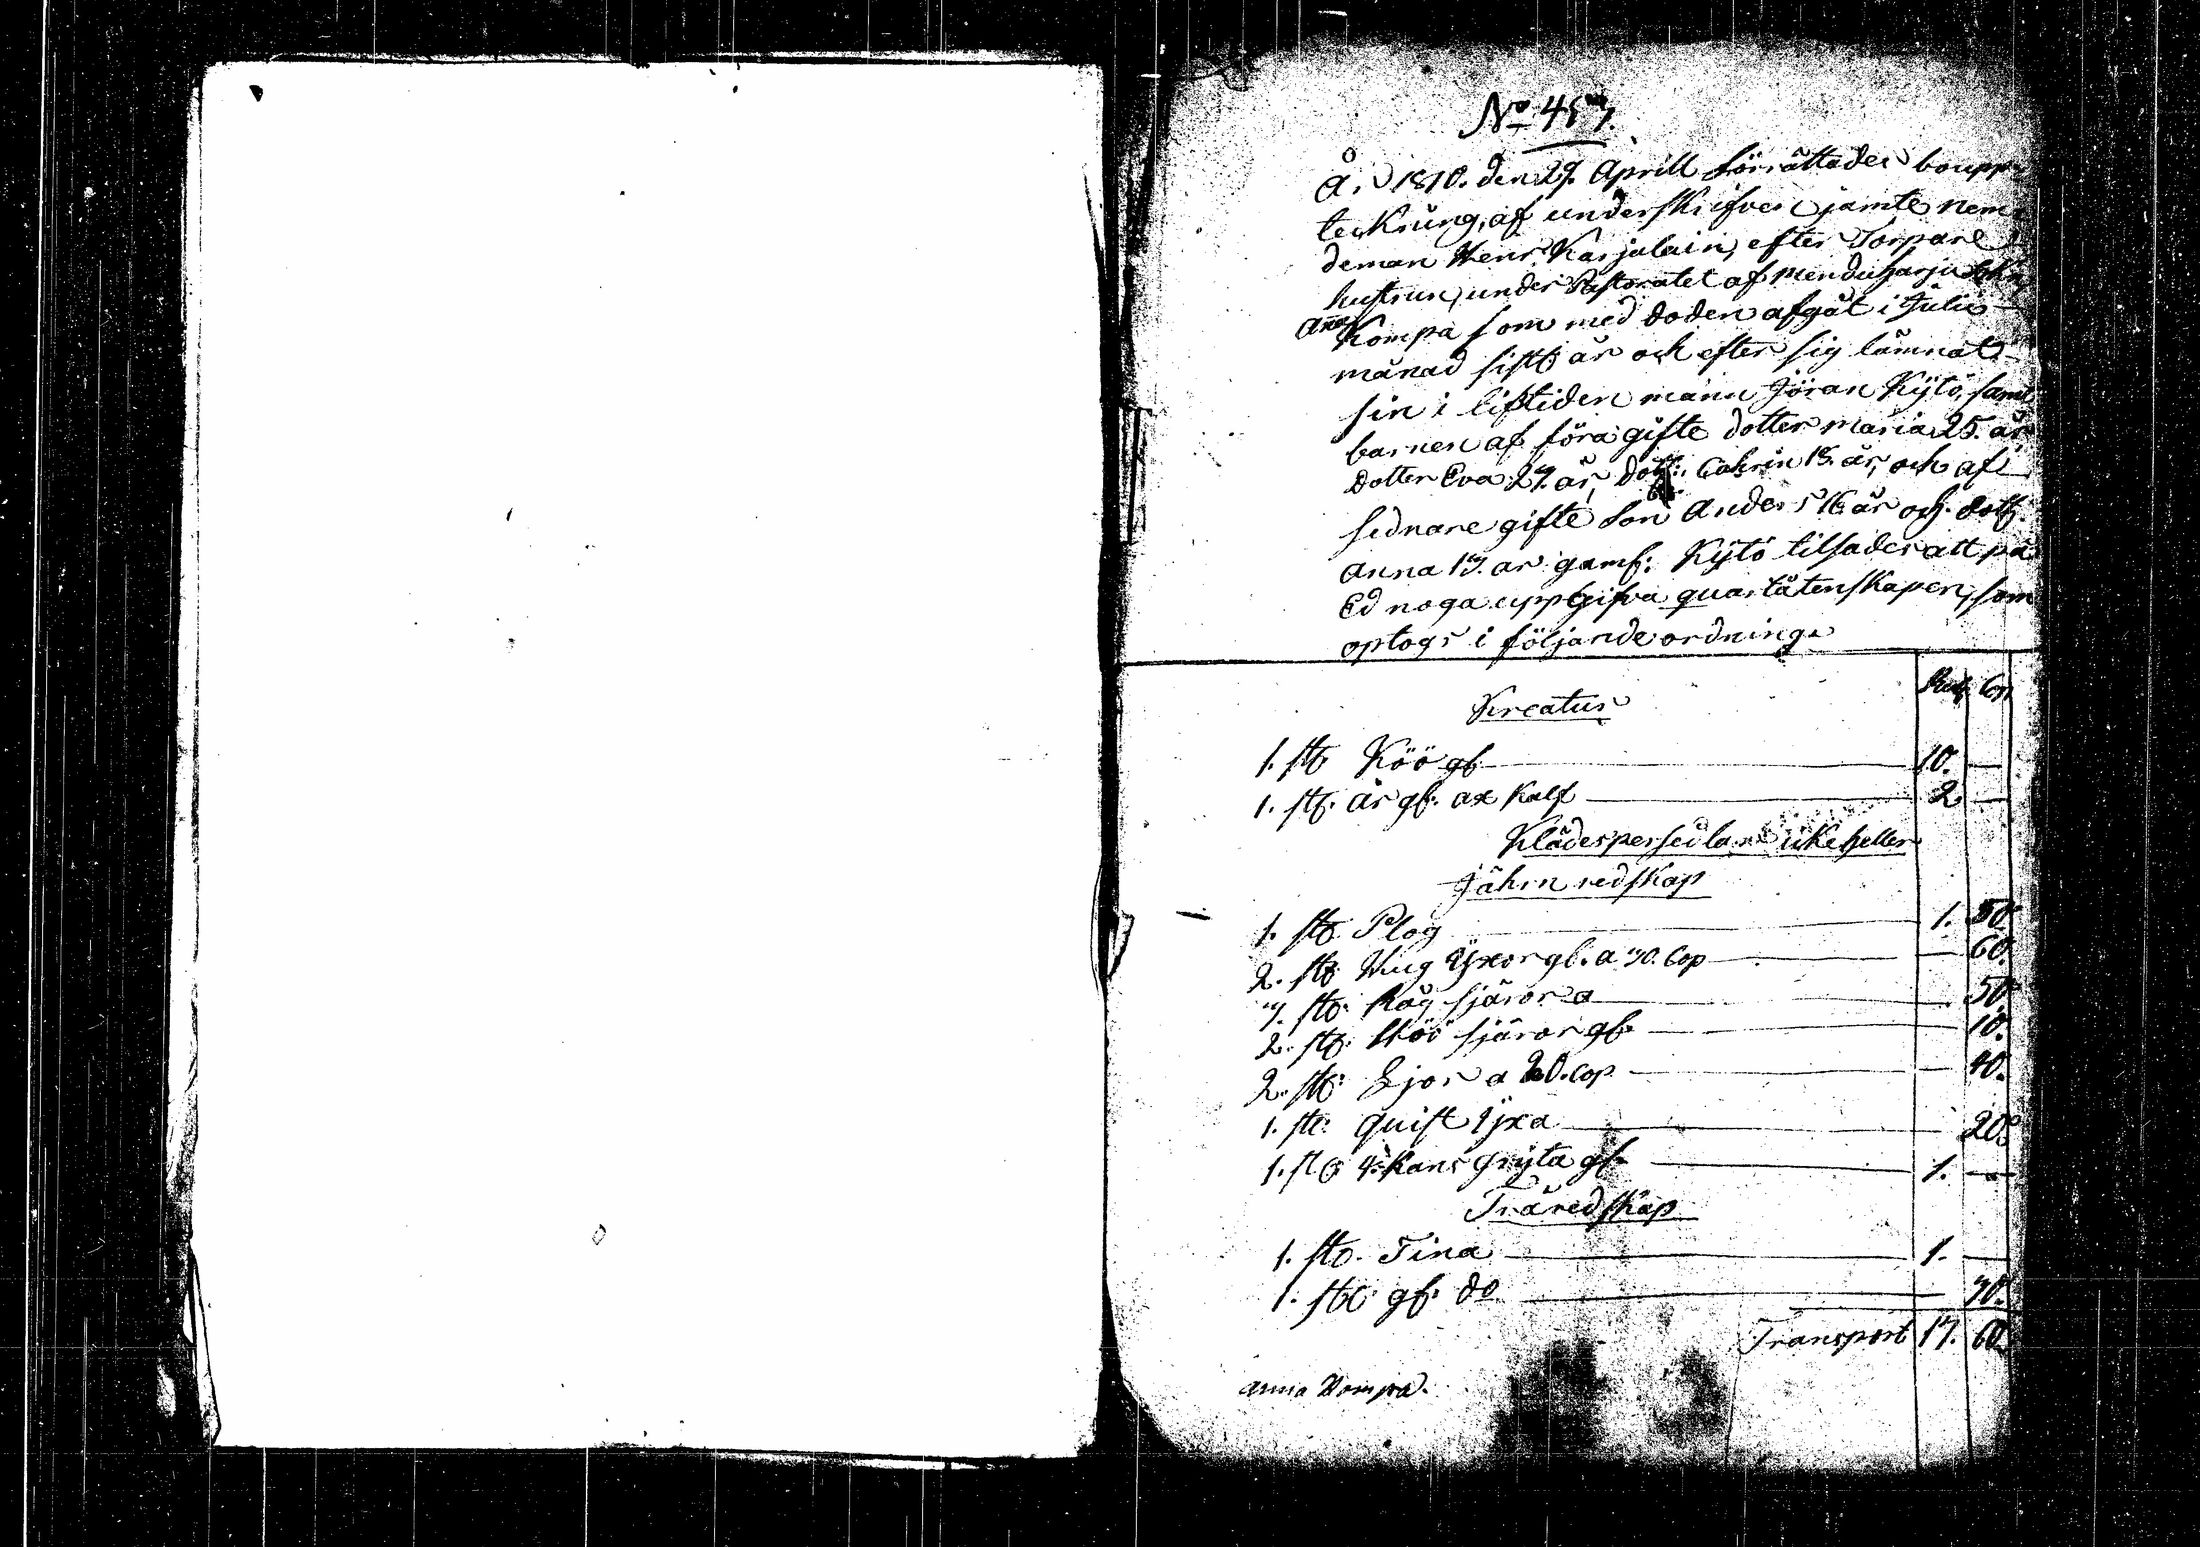 År 1810. den 29. Aprill förrättades boupp-
teckning, af underskrifven jämte nem-
deman Henr. Karjalain, efter Torpare
hustrun, under Pastoratet af
Anna Kompa som med döden afgåt i Julii
månad sistl. år och efter sig lämnat
sin i liftiden mann Jöran Kÿtö, samt
barnen af förra gifte dotter Maria 25. år
Dotter Eva 27. år, dott: Cahrin 18. år, och af
sednare gifte Son Anders 16 år och dott:
Anna 13. år gaml: Kÿtö tilsades att på
Ed noga uppgifva quarlåtenskapen, som
optogs i följande ordning.
Rub. Cop.
Kreatur
1. st. Köö gl. 10. —
1. st. års gl. ox Kalf 2 —
Klädespersedlar icke heller
Jährn redskap
1. st. Plog 1. 50.
2. st. Hug Ÿxor gl. a 30. Cop — 60.
7. st. Råg sjäror a 50.
2. st. Höö sjäror gl. 10.
2. st. Ljor a 20. Cop — 40.
1. st. quist ÿxa 20.
1. st. 4. Kans Grÿta gl. 1. —
Träredskap
1. st. Tina 1. —
1. st. gl. do 30.
Transport 17. 60.
Anna Kompa.